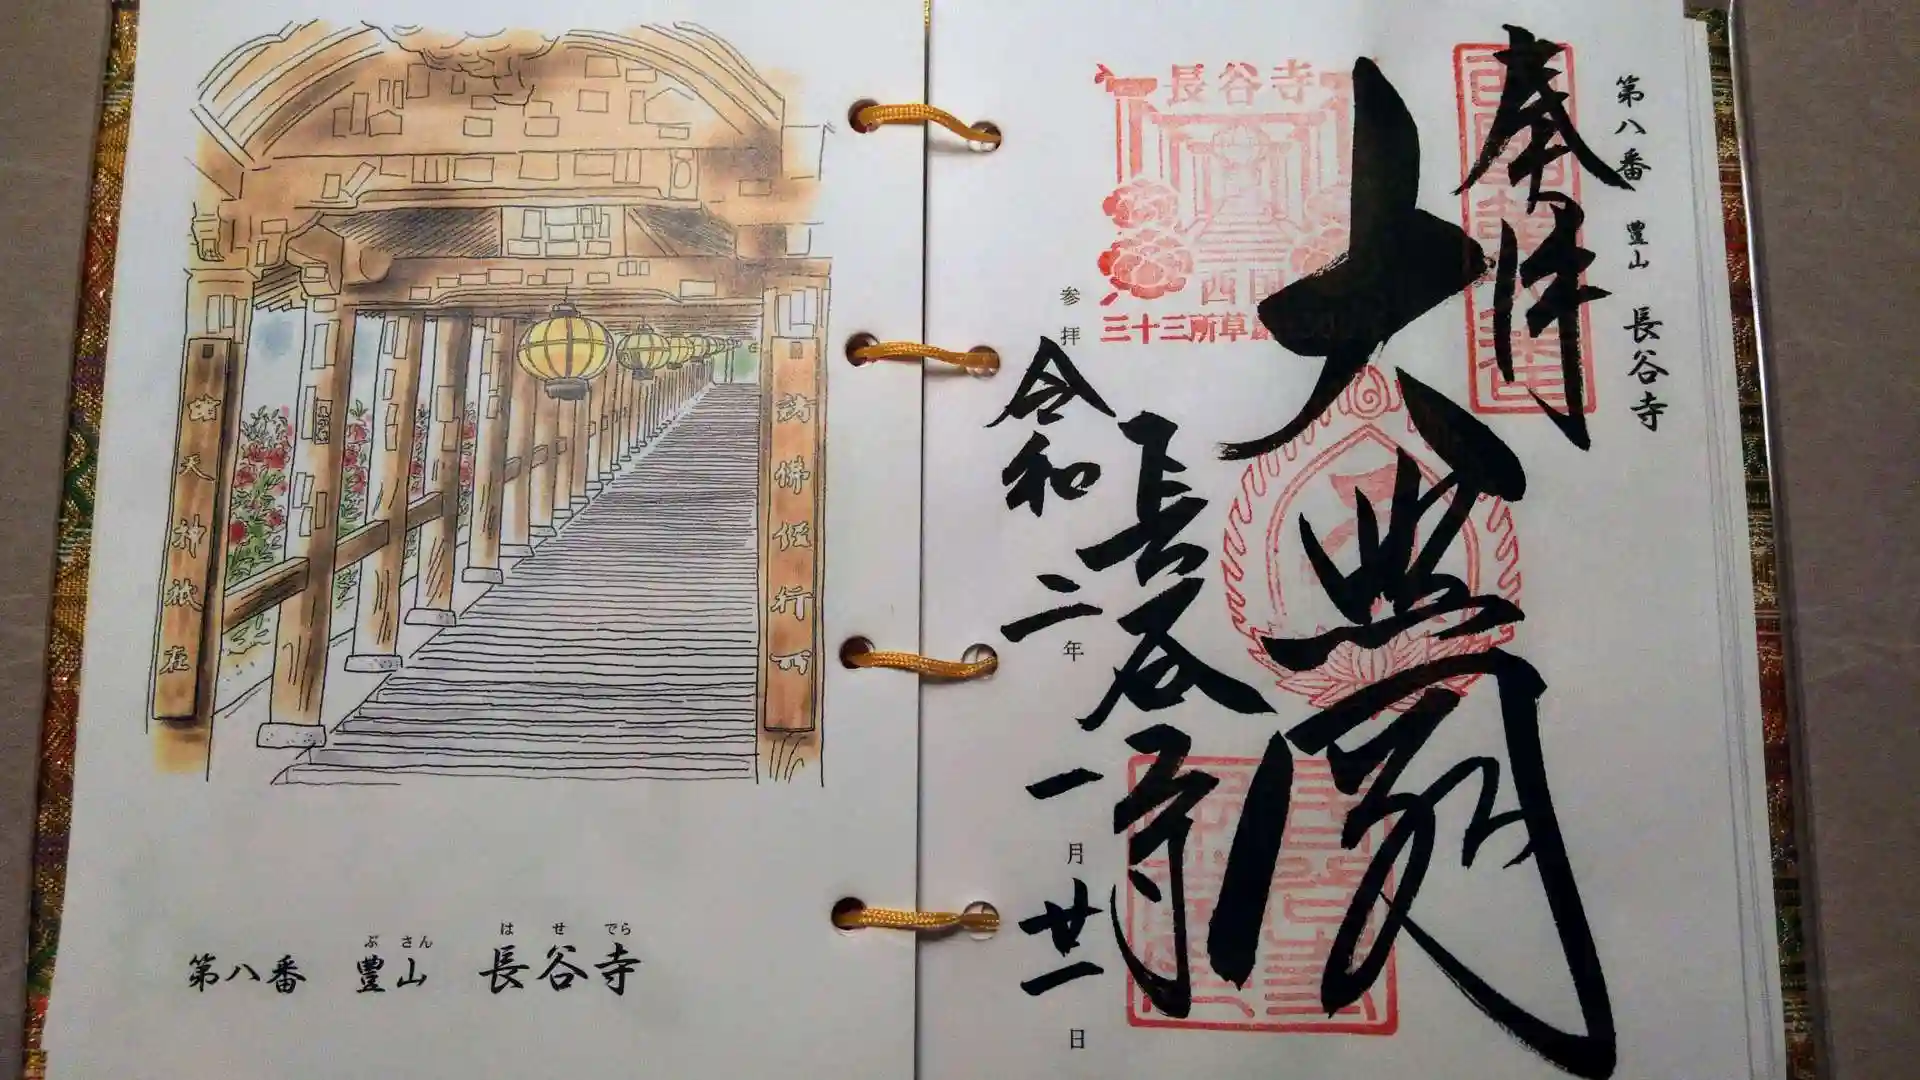 第八番 豊山 長谷寺
奉拝
大悲閣
長谷寺
参拝
令和二年一月廿一日
長谷寺
西国
三十三所草創
諸佛經行所
諸天神祇在
第八番 豊山 長谷寺
ぶさん はせでら